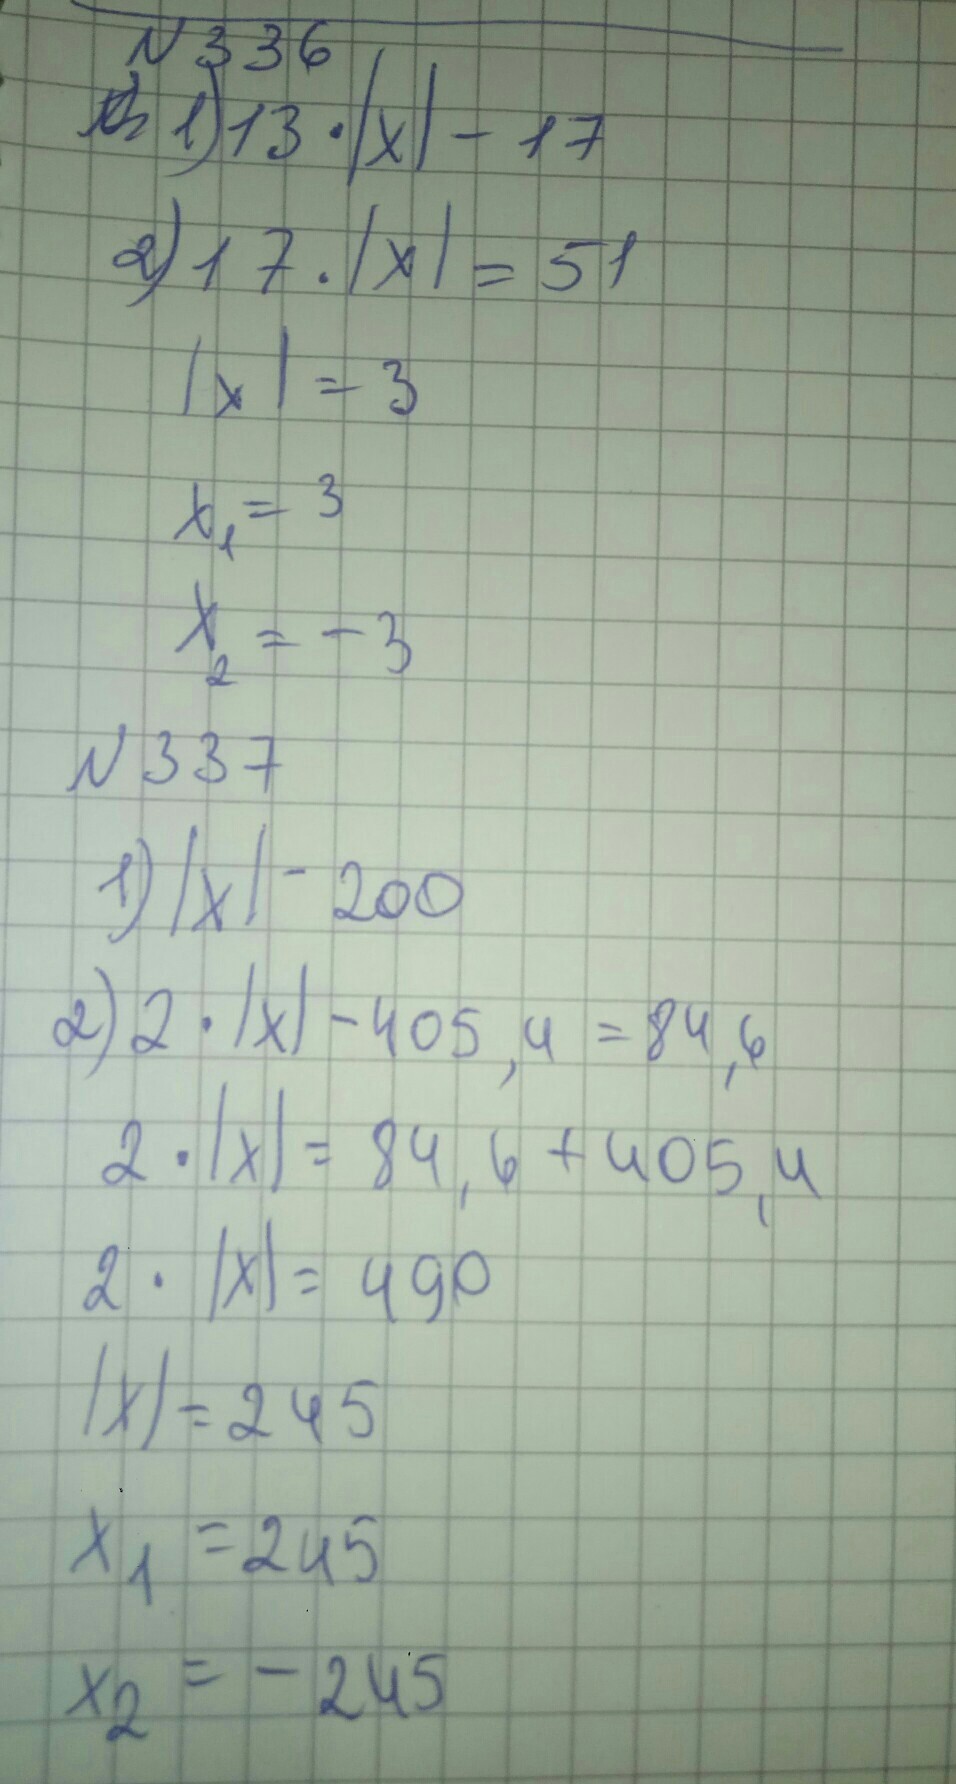 N 336
1) 13 · |x| - 17
2) 17 · |x| = 51
|x| = 3
x₁ = 3
x₂ = -3
N 337
1) |x| - 200
2) 2 · |x| - 405,4 = 84,6
2 · |x| = 84,6 + 405,4
2 · |x| = 490
|x| = 245
x₁ = 245
x₂ = - 245